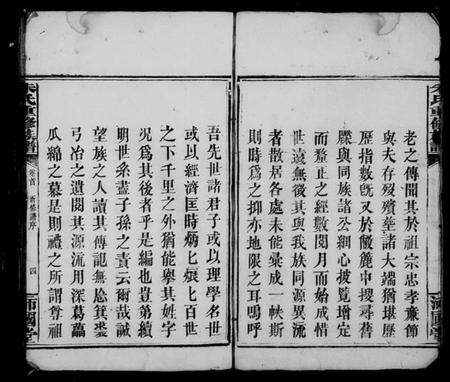 老之傳聞其於祖宗忠孝廉節
與夫存歿殯塟諸大端猶堪歷
歷指數旣又於餖飣中搜尋舊
牒與同族諸公細心披覽增定
而釐正之經數閱月而始成惜
世遠無後其與我族同源異流
者散居各處未能彙成一帙斯
則時爲之抑亦地限之耳嗚呼
吾先世諸君子或以理學名世
或以經濟匡時炳匕烺匕百世
之下千里之外猶能舉其姓字
况爲其後者乎是編也豈第續
明世系盡子孫之責云爾哉誠
望族之人讀其傳記無忝箕裘
弓冶之遺閱其源流用深葛藟
瓜綿之慕是則禮之所謂尊祖
朱氏重修族譜
卷首 新修譜序 四
沛國堂